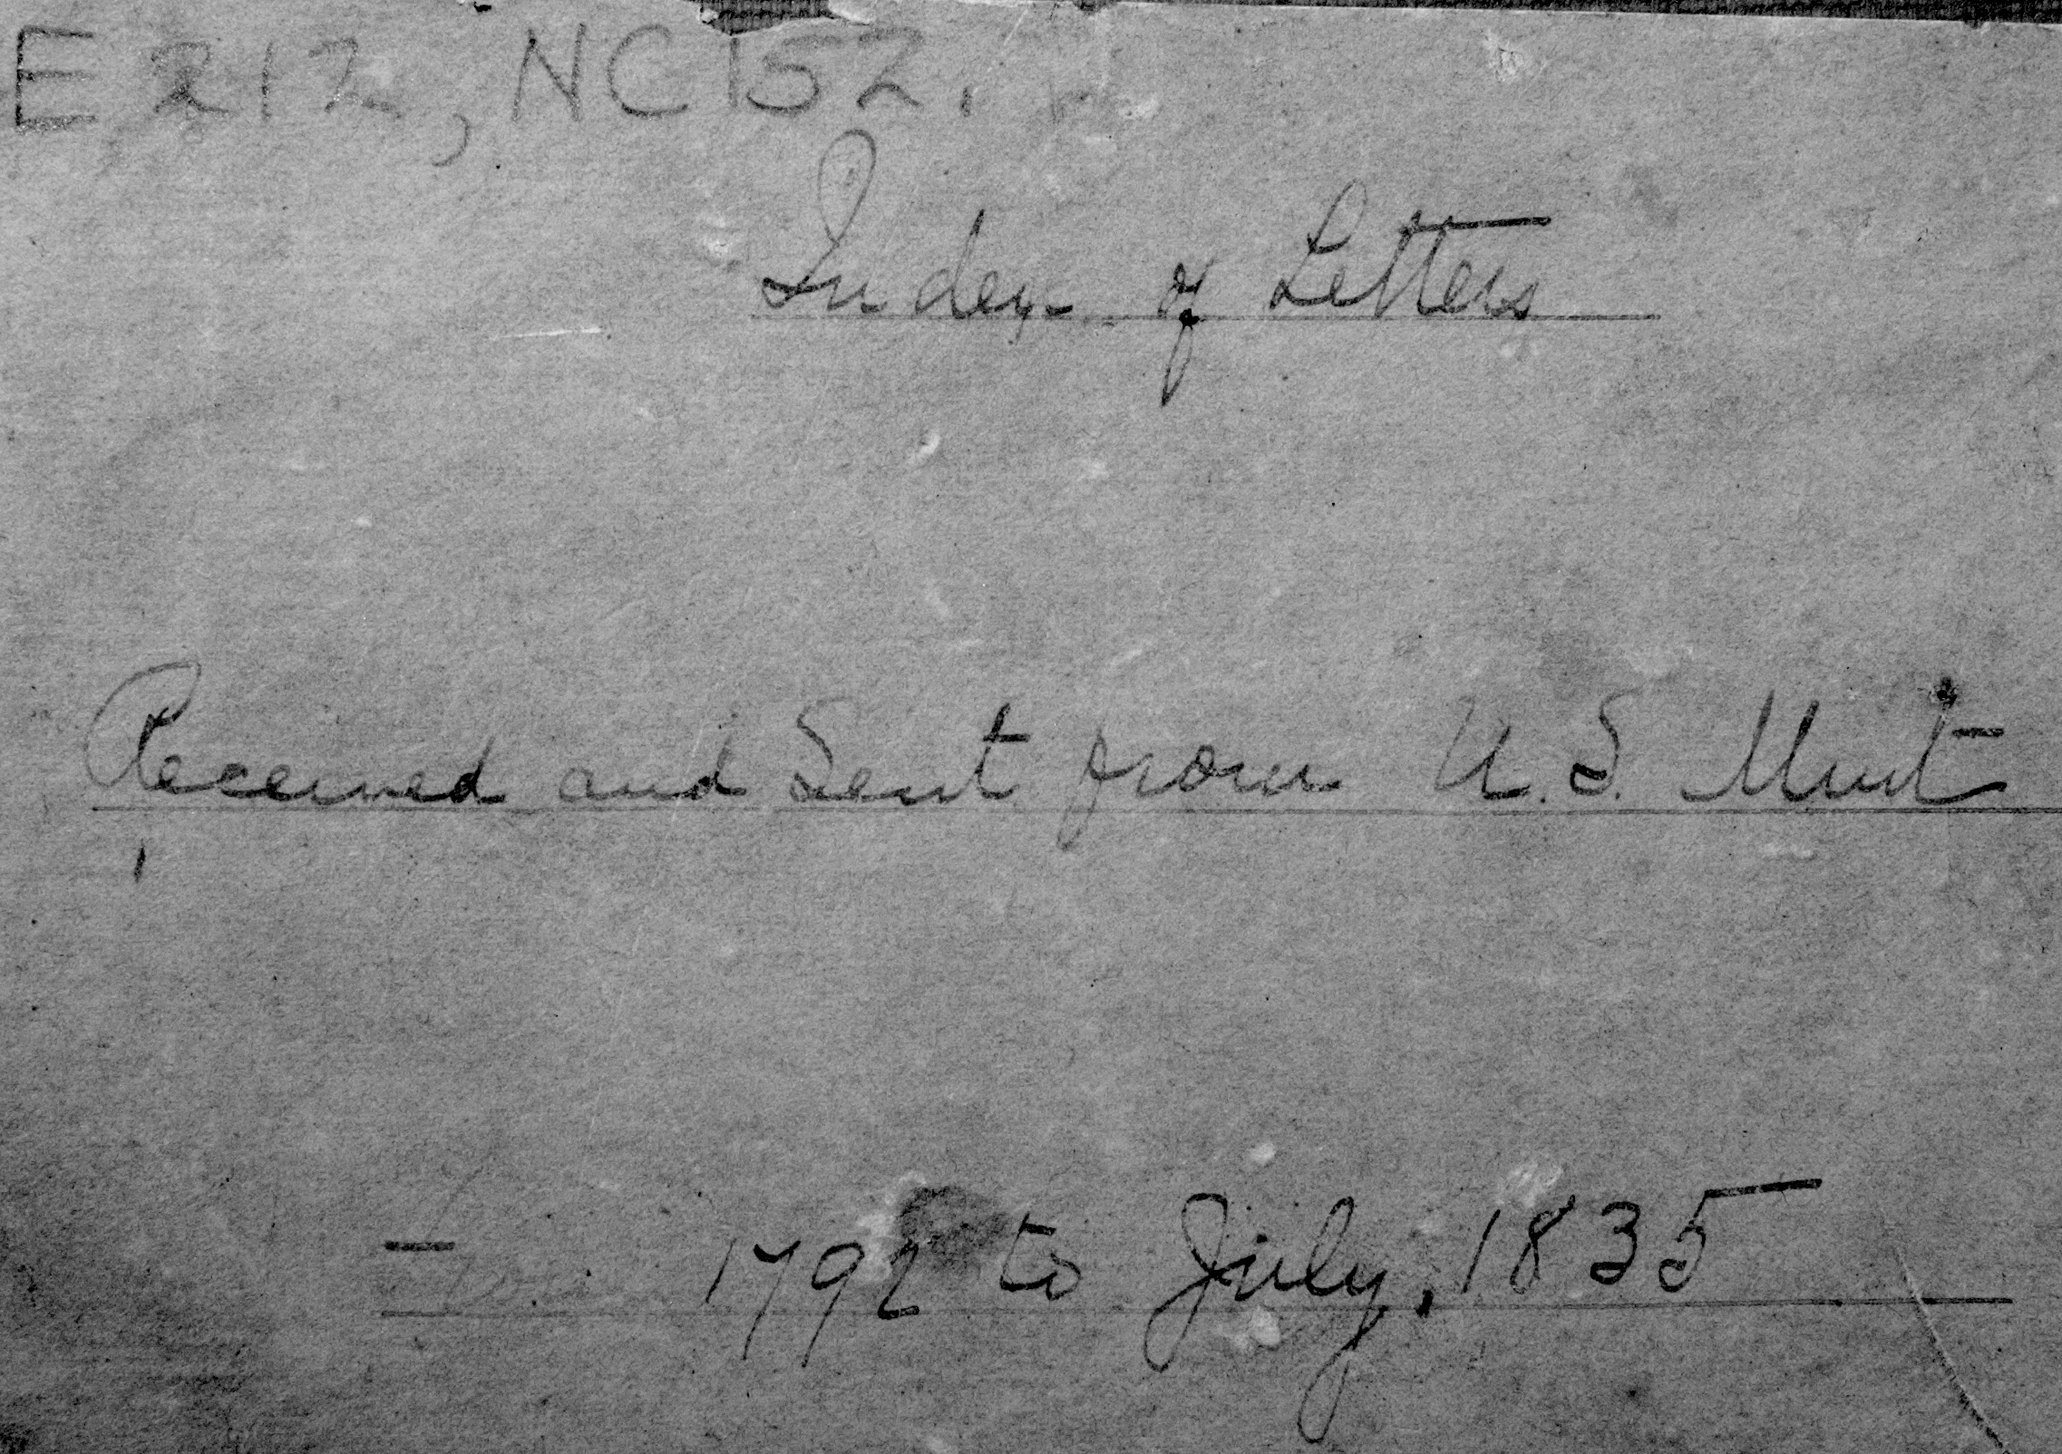 E 212, NC 152.
Index of Letters
Received and Sent from U.S. Mint
1792 to July, 1835